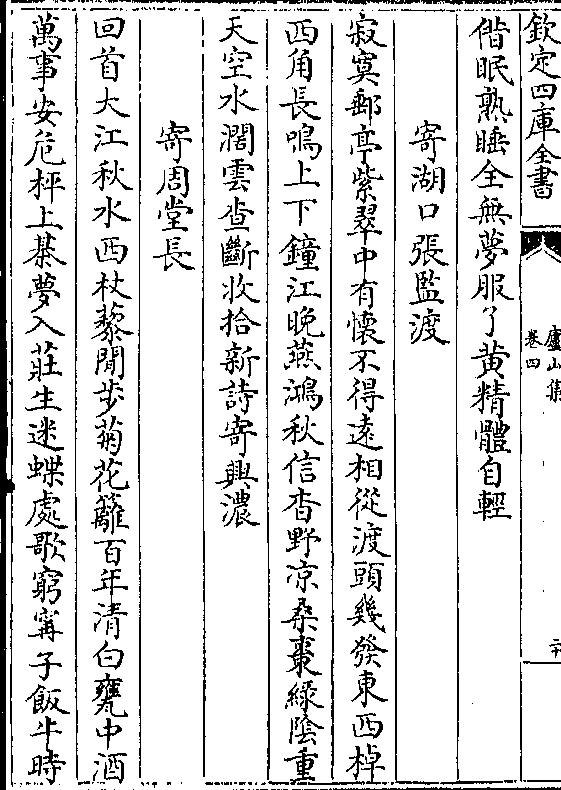 欽定四庫全書
廬山集
卷四
偕眠熟睡全無夢服了黄精體自輕
寄湖口張監渡
寂寞郵亭紫翠中有懷不得遠相從渡頭幾發東西棹
西角長鳴上下鐘江晚燕鴻秋信杳野凉桑棗緑陰重
天空水濶雲杳斷收拾新詩寄興濃
寄周堂長
回首大江秋水西杖藜閒步菊花籬百年清白甕中酒
萬事安危枰上棊夢入莊生迷蝶處歌窮甯子飯牛時